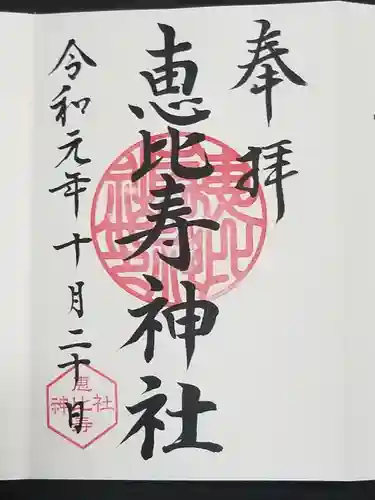 奉拝
恵比寿神社
令和元年十月二十日
恵比寿
神社